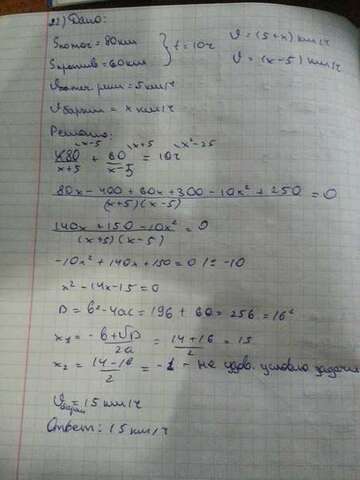 22) Дано:
Sпотеч = 80км
Sпротив = 60км } t = 10ч
ϑ = (5+x) км/ч
ϑ = (x-5) км/ч
ϑтечен реки = 5 км/ч
ϑбаржи = x км/ч
Решение:
80/(x+5) \x-5 + 60/(x-5) \x+5 = 10ч \x²-25
(80x - 400 + 60x + 300 - 10x² + 250)/((x+5)(x-5)) = 0
(140x + 150 - 10x²)/((x+5)(x-5)) = 0
-10x² + 140x + 150 = 0 |: -10
x² - 14x - 15 = 0
D = b² - 4ac = 196 + 60 = 256 = 16²
x₁ = (-b+√D)/2a = (14+16)/2 = 15
x₂ = (14-16)/2 = -1 - не удов. условию задачи
ϑбаржи = 15 км/ч
Ответ: 15 км/ч